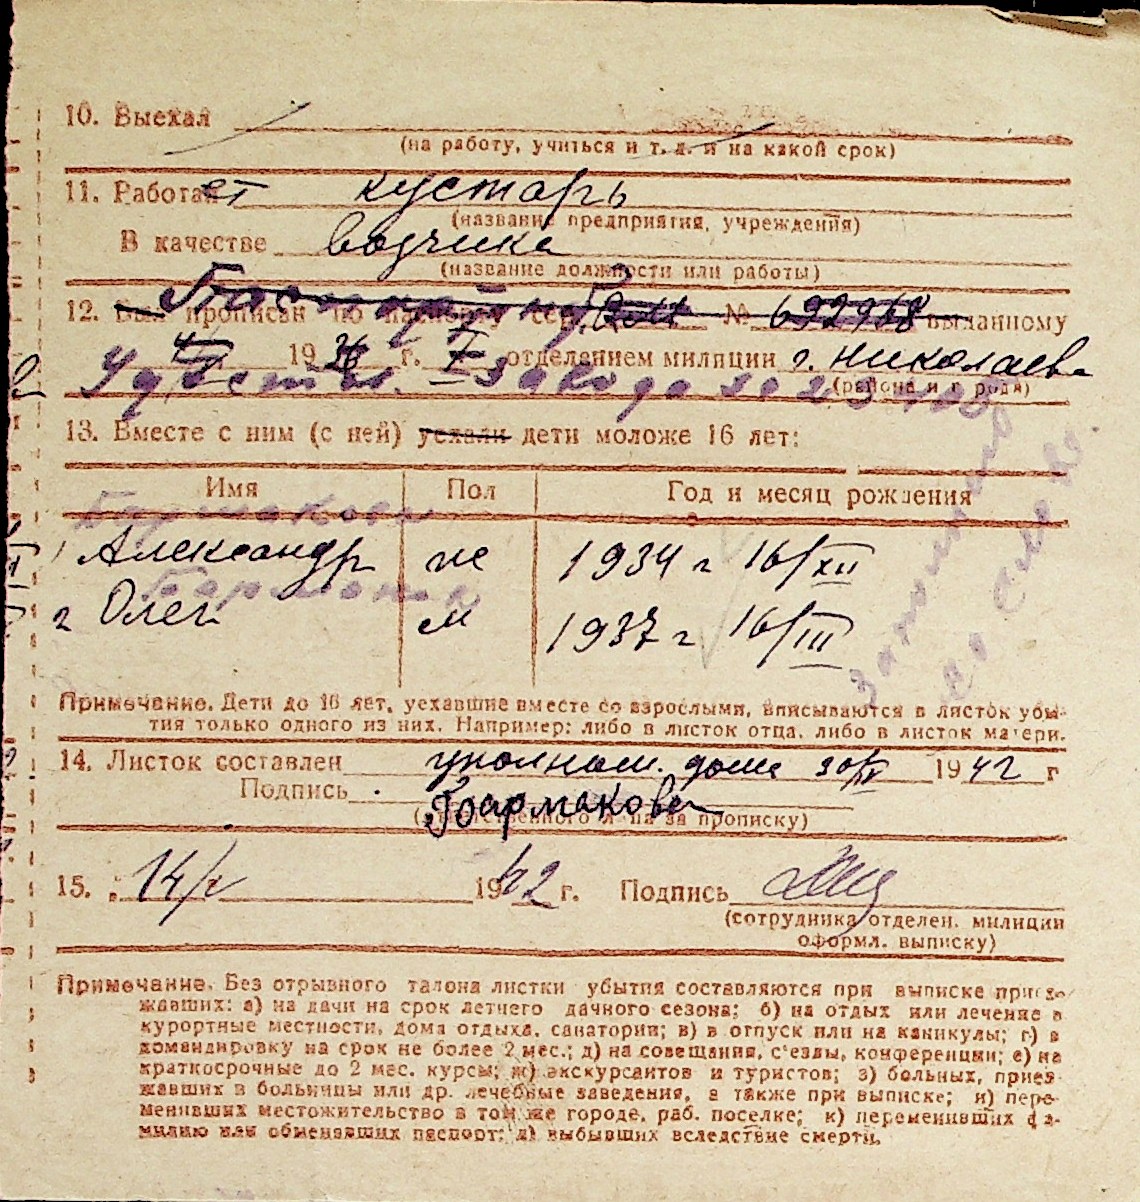 10. Выехал
(на работу, учиться и т. д. и на какой срок)
11. Работает кустарь
(название предприятия, учреждения)
В качестве
(название должности или работы)
12. Был прописан по паспорту сер. № 692968 выданному
1936 г. V отделением милиции г. Николаева
(района и г. рода)
13. Вместе с ним (с ней) уехали дети моложе 16 лет:
Имя Пол Год и месяц рождения
1 Александр м 1934 г 16/XII
2 Олег м 1937 г 16/III
Примечание. Дети до 16 лет, уехавшие вместе со взрослыми, вписываются в листок убы-
тия только одного из них. Например: либо в листок отца, либо в листок матери.
14. Листок составлен уполном. дома 30/IV 1942 г
Подпись Бармакова
(ответственного л-ца за прописку)
15. 14/V 1942 г. Подпись
(сотрудника отделен. милиции
оформл. выписку)
Примечание. Без отрывного талона листки убытия составляются при выписке приез-
жавших: а) на дачи на срок летнего дачного сезона; б) на отдых или лечение в
курортные местности, дома отдыха, санатории; в) в отпуск или на каникулы; г) в
командировку на срок не более 2 мес.; д) на совещания, с'езды, конференции; е) на
краткосрочные до 2 мес. курсы; ж) экскурсантов и туристов; з) больных, приез-
жавших в больницы или др. лечебные заведения, а также при выписке; и) пере-
менивших местожительство в том же городе, раб. поселке; к) переменивших фа-
милию или обменявших паспорт; л) выбывших вследствие смерти.